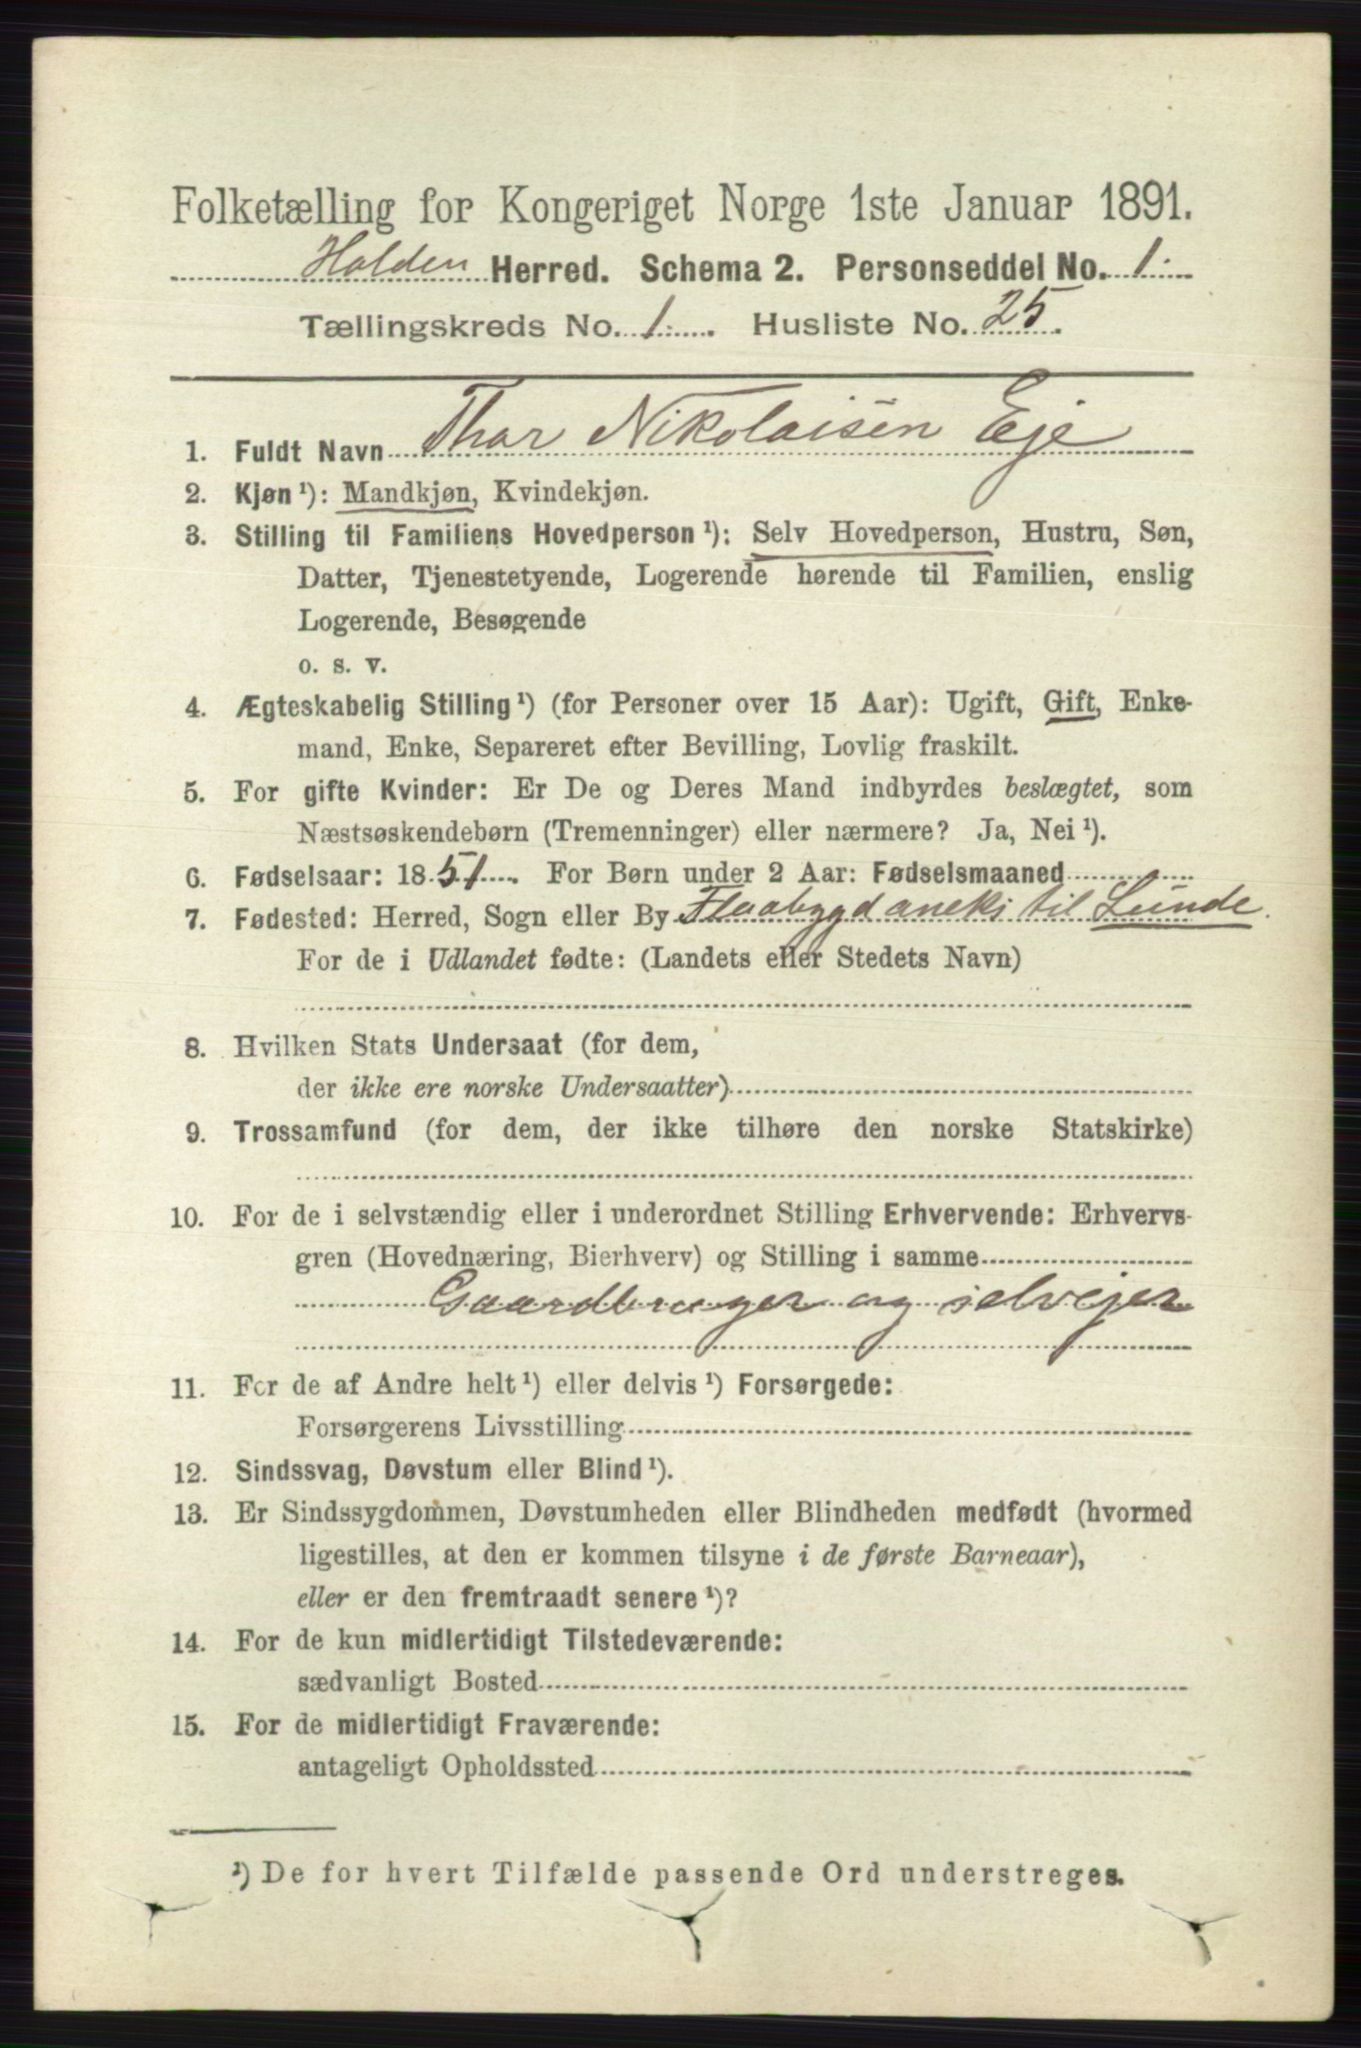 Folketælling for Kongeriget Norge 1ste Januar 1891.
Holden Herred. Schema 2. Personseddel No. 1.
Tællingskreds No. 1. Husliste No. 25.
1. Fuldt Navn Thor Nikolaisen Eje
2. Kjøn ¹): Mandkjøn, Kvindekjøn.
3. Stilling til Familiens Hovedperson ¹): Selv Hovedperson, Hustru, Søn,
Datter, Tjenestetyende, Logerende hørende til Familien, enslig
Logerende, Besøgende
o. s. v.
4. Ægteskabelig Stilling ¹) (for Personer over 15 Aar): Ugift, Gift, Enke-
mand, Enke, Separeret efter Bevilling, Lovlig fraskilt.
5. For gifte Kvinder: Er De og Deres Mand indbyrdes beslægtet, som
Næstsøskendebørn (Tremenninger) eller nærmere? Ja, Nei ¹).
6. Fødselsaar: 1851. For Børn under 2 Aar: Fødselsmaaned
7. Fødested: Herred, Sogn eller By Flaabygd aneks til Lunde.
For de i Udlandet fødte: (Landets eller Stedets Navn)
8. Hvilken Stats Undersaat (for dem,
der ikke ere norske Undersaatter)
9. Trossamfund (for dem, der ikke tilhøre den norske Statskirke)
10. For de i selvstændig eller i underordnet Stilling Erhvervende: Erhvervs-
gren (Hovednæring, Bierhverv) og Stilling i samme
Gaardbruger og selvejer
11. For de af Andre helt ¹) eller delvis ¹) Forsørgede:
Forsørgerens Livsstilling
12. Sindssvag, Døvstum eller Blind ¹).
13. Er Sindssygdommen, Døvstumheden eller Blindheden medfødt (hvormed
ligestilles, at den er kommen tilsyne i de første Barneaar),
eller er den fremtraadt senere ¹)?
14. For de kun midlertidigt Tilstedeværende:
sædvanligt Bosted
15. For de midlertidigt Fraværende:
antageligt Opholdssted
¹) De for hvert Tilfælde passende Ord understreges.